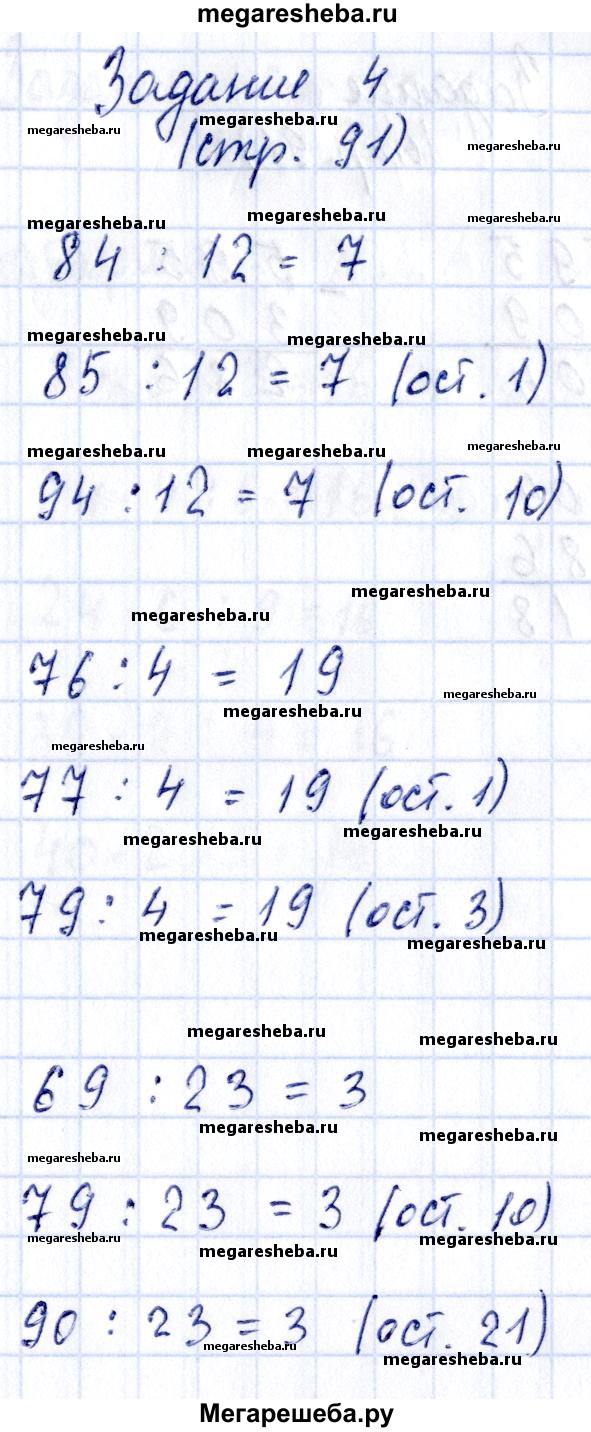 megaresheba.ru
Задание 4
megaresheba.ru megaresheba.ru megaresheba.ru
(стр. 91)
megaresheba.ru megaresheba.ru megaresheba.ru
84 : 12 = 7
megaresheba.ru megaresheba.ru
85 : 12 = 7 (ост. 1)
megaresheba.ru megaresheba.ru megaresheba.ru
94 : 12 = 7 (ост. 10)
megaresheba.ru
megaresheba.ru
76 : 4 = 19
megaresheba.ru
megaresheba.ru
megaresheba.ru
77 : 4 = 19 (ост. 1)
megaresheba.ru megaresheba.ru
79 : 4 = 19 (ост. 3)
megaresheba.ru megaresheba.ru
megaresheba.ru megaresheba.ru
69 : 23 = 3
megaresheba.ru megaresheba.ru
megaresheba.ru
79 : 23 = 3 (ост. 10)
megaresheba.ru megaresheba.ru megaresheba.ru
90 : 23 = 3 (ост. 21)
megaresheba.ru megaresheba.ru
Мегарешеба.ру